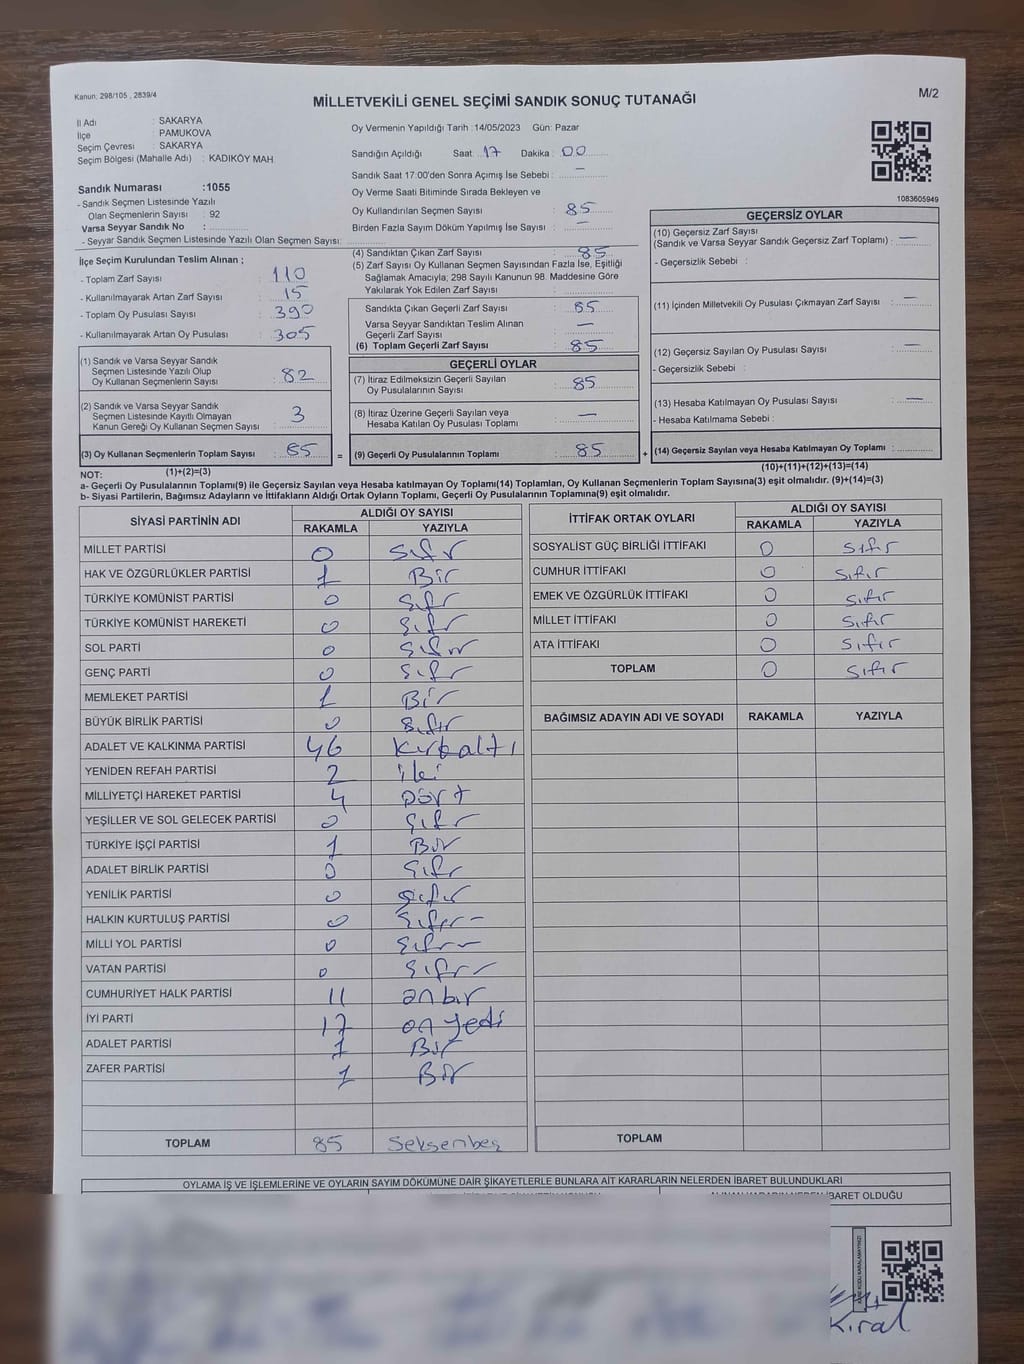 Kanun: 298/105 , 2839/4
MİLLETVEKİLİ GENEL SEÇİMİ SANDIK SONUÇ TUTANAĞI
M/2
İl Adı : SAKARYA
İlçe : PAMUKOVA
Seçim Çevresi : SAKARYA
Seçim Bölgesi (Mahalle Adı) : KADIKÖY MAH.
Sandık Numarası :1055
- Sandık Seçmen Listesinde Yazılı
Olan Seçmenlerin Sayısı : 92
Varsa Seyyar Sandık No :
- Seyyar Sandık Seçmen Listesinde Yazılı Olan Seçmen Sayısı:
Oy Vermenin Yapıldığı Tarih :14/05/2023 Gün: Pazar
Sandığın Açıldığı Saat 17 Dakika : 00
Sandık Saat 17:00'den Sonra Açımış İse Sebebi : —
Oy Verme Saati Bitiminde Sırada Bekleyen ve
Oy Kullandırılan Seçmen Sayısı : 85
Birden Fazla Sayım Döküm Yapılmış İse Sayısı : —
1083605949
İlçe Seçim Kurulundan Teslim Alınan ;
- Toplam Zarf Sayısı : 110
- Kullanılmayarak Artan Zarf Sayısı : 15
- Toplam Oy Pusulası Sayısı : 390
- Kullanılmayarak Artan Oy Pusulası : 305
(1) Sandık ve Varsa Seyyar Sandık
Seçmen Listesinde Yazılı Olup
Oy Kullanan Seçmenlerin Sayısı : 82
(2) Sandık ve Varsa Seyyar Sandık
Seçmen Listesinde Kayıtlı Olmayan
Kanun Gereği Oy Kullanan Seçmen Sayısı : 3
(3) Oy Kullanan Seçmenlerin Toplam Sayısı : 85
(4) Sandıktan Çıkan Zarf Sayısı : 85
(5) Zarf Sayısı Oy Kullanan Seçmen Sayısından Fazla İse, Eşitliği
Sağlamak Amacıyla; 298 Sayılı Kanunun 98. Maddesine Göre
Yakılarak Yok Edilen Zarf Sayısı :
Sandıkta Çıkan Geçerli Zarf Sayısı : 85
Varsa Seyyar Sandıktan Teslim Alınan
Geçerli Zarf Sayısı : —
(6) Toplam Geçerli Zarf Sayısı : 85
GEÇERLİ OYLAR
(7) İtiraz Edilmeksizin Geçerli Sayılan
Oy Pusulalarının Sayısı : 85
(8) İtiraz Üzerine Geçerli Sayılan veya
Hesaba Katılan Oy Pusulası Toplamı : —
= (9) Geçerli Oy Pusulalarının Toplamı : 85
GEÇERSİZ OYLAR
(10) Geçersiz Zarf Sayısı
(Sandık ve Varsa Seyyar Sandık Geçersiz Zarf Toplamı) : —
- Geçersizlik Sebebi :
(11) İçinden Milletvekili Oy Pusulası Çıkmayan Zarf Sayısı : —
(12) Geçersiz Sayılan Oy Pusulası Sayısı : —
- Geçersizlik Sebebi :
(13) Hesaba Katılmayan Oy Pusulası Sayısı : —
- Hesaba Katılmama Sebebi :
+ (14) Geçersiz Sayılan veya Hesaba Katılmayan Oy Toplamı :
NOT: (1)+(2)=(3)
(10)+(11)+(12)+(13)=(14)
a- Geçerli Oy Pusulalarının Toplamı(9) ile Geçersiz Sayılan veya Hesaba katılmayan Oy Toplamı(14) Toplamları, Oy Kullanan Seçmenlerin Toplam Sayısına(3) eşit olmalıdır. (9)+(14)=(3)
b- Siyasi Partilerin, Bağımsız Adayların ve İttifakların Aldığı Ortak Oyların Toplamı, Geçerli Oy Pusulalarının Toplamına(9) eşit olmalıdır.
SİYASİ PARTİNİN ADI ALDIĞI OY SAYISI
RAKAMLA YAZIYLA
MİLLET PARTİSİ 0 Sıfır
HAK VE ÖZGÜRLÜKLER PARTİSİ 1 Bir
TÜRKİYE KOMÜNİST PARTİSİ 0 Sıfır
TÜRKİYE KOMÜNİST HAREKETİ 0 Sıfır
SOL PARTİ 0 Sıfır
GENÇ PARTİ 0 Sıfır
MEMLEKET PARTİSİ 1 Bir
BÜYÜK BİRLİK PARTİSİ 0 Sıfır
ADALET VE KALKINMA PARTİSİ 46 Kırkaltı
YENİDEN REFAH PARTİSİ 2 iki
MİLLİYETÇİ HAREKET PARTİSİ 4 Dört
YEŞİLLER VE SOL GELECEK PARTİSİ 0 Sıfır
TÜRKİYE İŞÇİ PARTİSİ 1 Bir
ADALET BİRLİK PARTİSİ 0 Sıfır
YENİLİK PARTİSİ 0 Sıfır
HALKIN KURTULUŞ PARTİSİ 0 Sıfır
MİLLİ YOL PARTİSİ 0 Sıfır
VATAN PARTİSİ 0 Sıfır
CUMHURİYET HALK PARTİSİ 11 onbir
İYİ PARTİ 17 on yedi
ADALET PARTİSİ 1 Bir
ZAFER PARTİSİ 1 Bir
TOPLAM 85 Seksenbeş
İTTİFAK ORTAK OYLARI ALDIĞI OY SAYISI
RAKAMLA YAZIYLA
SOSYALİST GÜÇ BİRLİĞİ İTTİFAKI 0 Sıfır
CUMHUR İTTİFAKI 0 Sıfır
EMEK VE ÖZGÜRLÜK İTTİFAKI 0 Sıfır
MİLLET İTTİFAKI 0 Sıfır
ATA İTTİFAKI 0 Sıfır
TOPLAM 0 Sıfır
BAĞIMSIZ ADAYIN ADI VE SOYADI RAKAMLA YAZIYLA
TOPLAM
OYLAMA İŞ VE İŞLEMLERİNE VE OYLARIN SAYIM DÖKÜMÜNE DAİR ŞİKAYETLERLE BUNLARA AİT KARARLARIN NELERDEN İBARET BULUNDUKLARI
İBARET OLDUĞU
Kıral